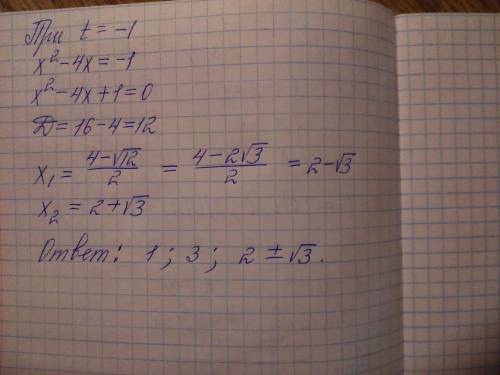 При t = -1
x² - 4x = -1
x² - 4x + 1 = 0
D = 16 - 4 = 12
x₁ = (4 - √12)/2 = (4 - 2√3)/2 = 2 - √3
x₂ = 2 + √3
Ответ: 1; 3; 2 ± √3.